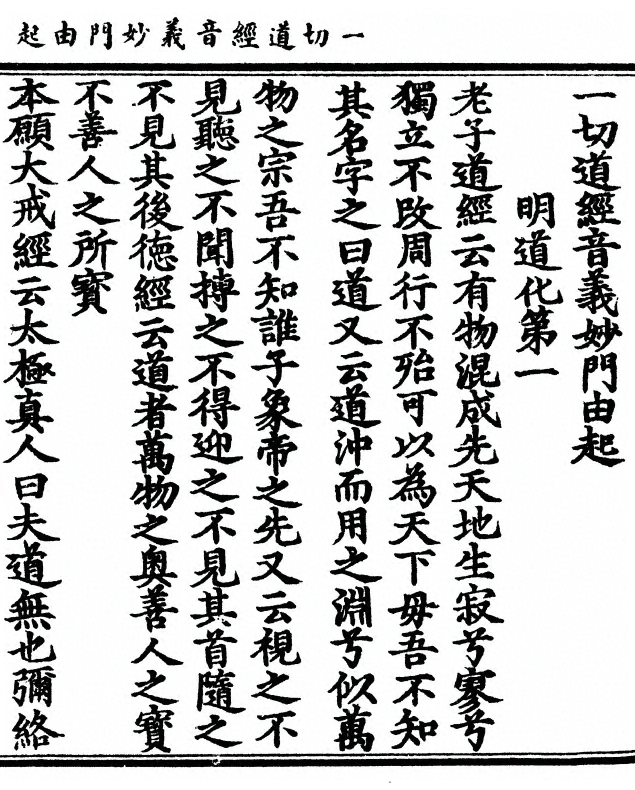 一切道經音義妙門由起
一切道經音義妙門由起
明道化第一
老子道經云有物混成先天地生寂兮寥兮
獨立不改周行不殆可以為天下母吾不知
其名字之曰道又云道沖而用之淵兮似萬
物之宗吾不知誰子象帝之先又云視之不
見聽之不聞摶之不得迎之不見其首隨之
不見其後德經云道者萬物之奧善人之寶
不善人之所寶
本願大戒經云太極真人曰夫道無也彌絡